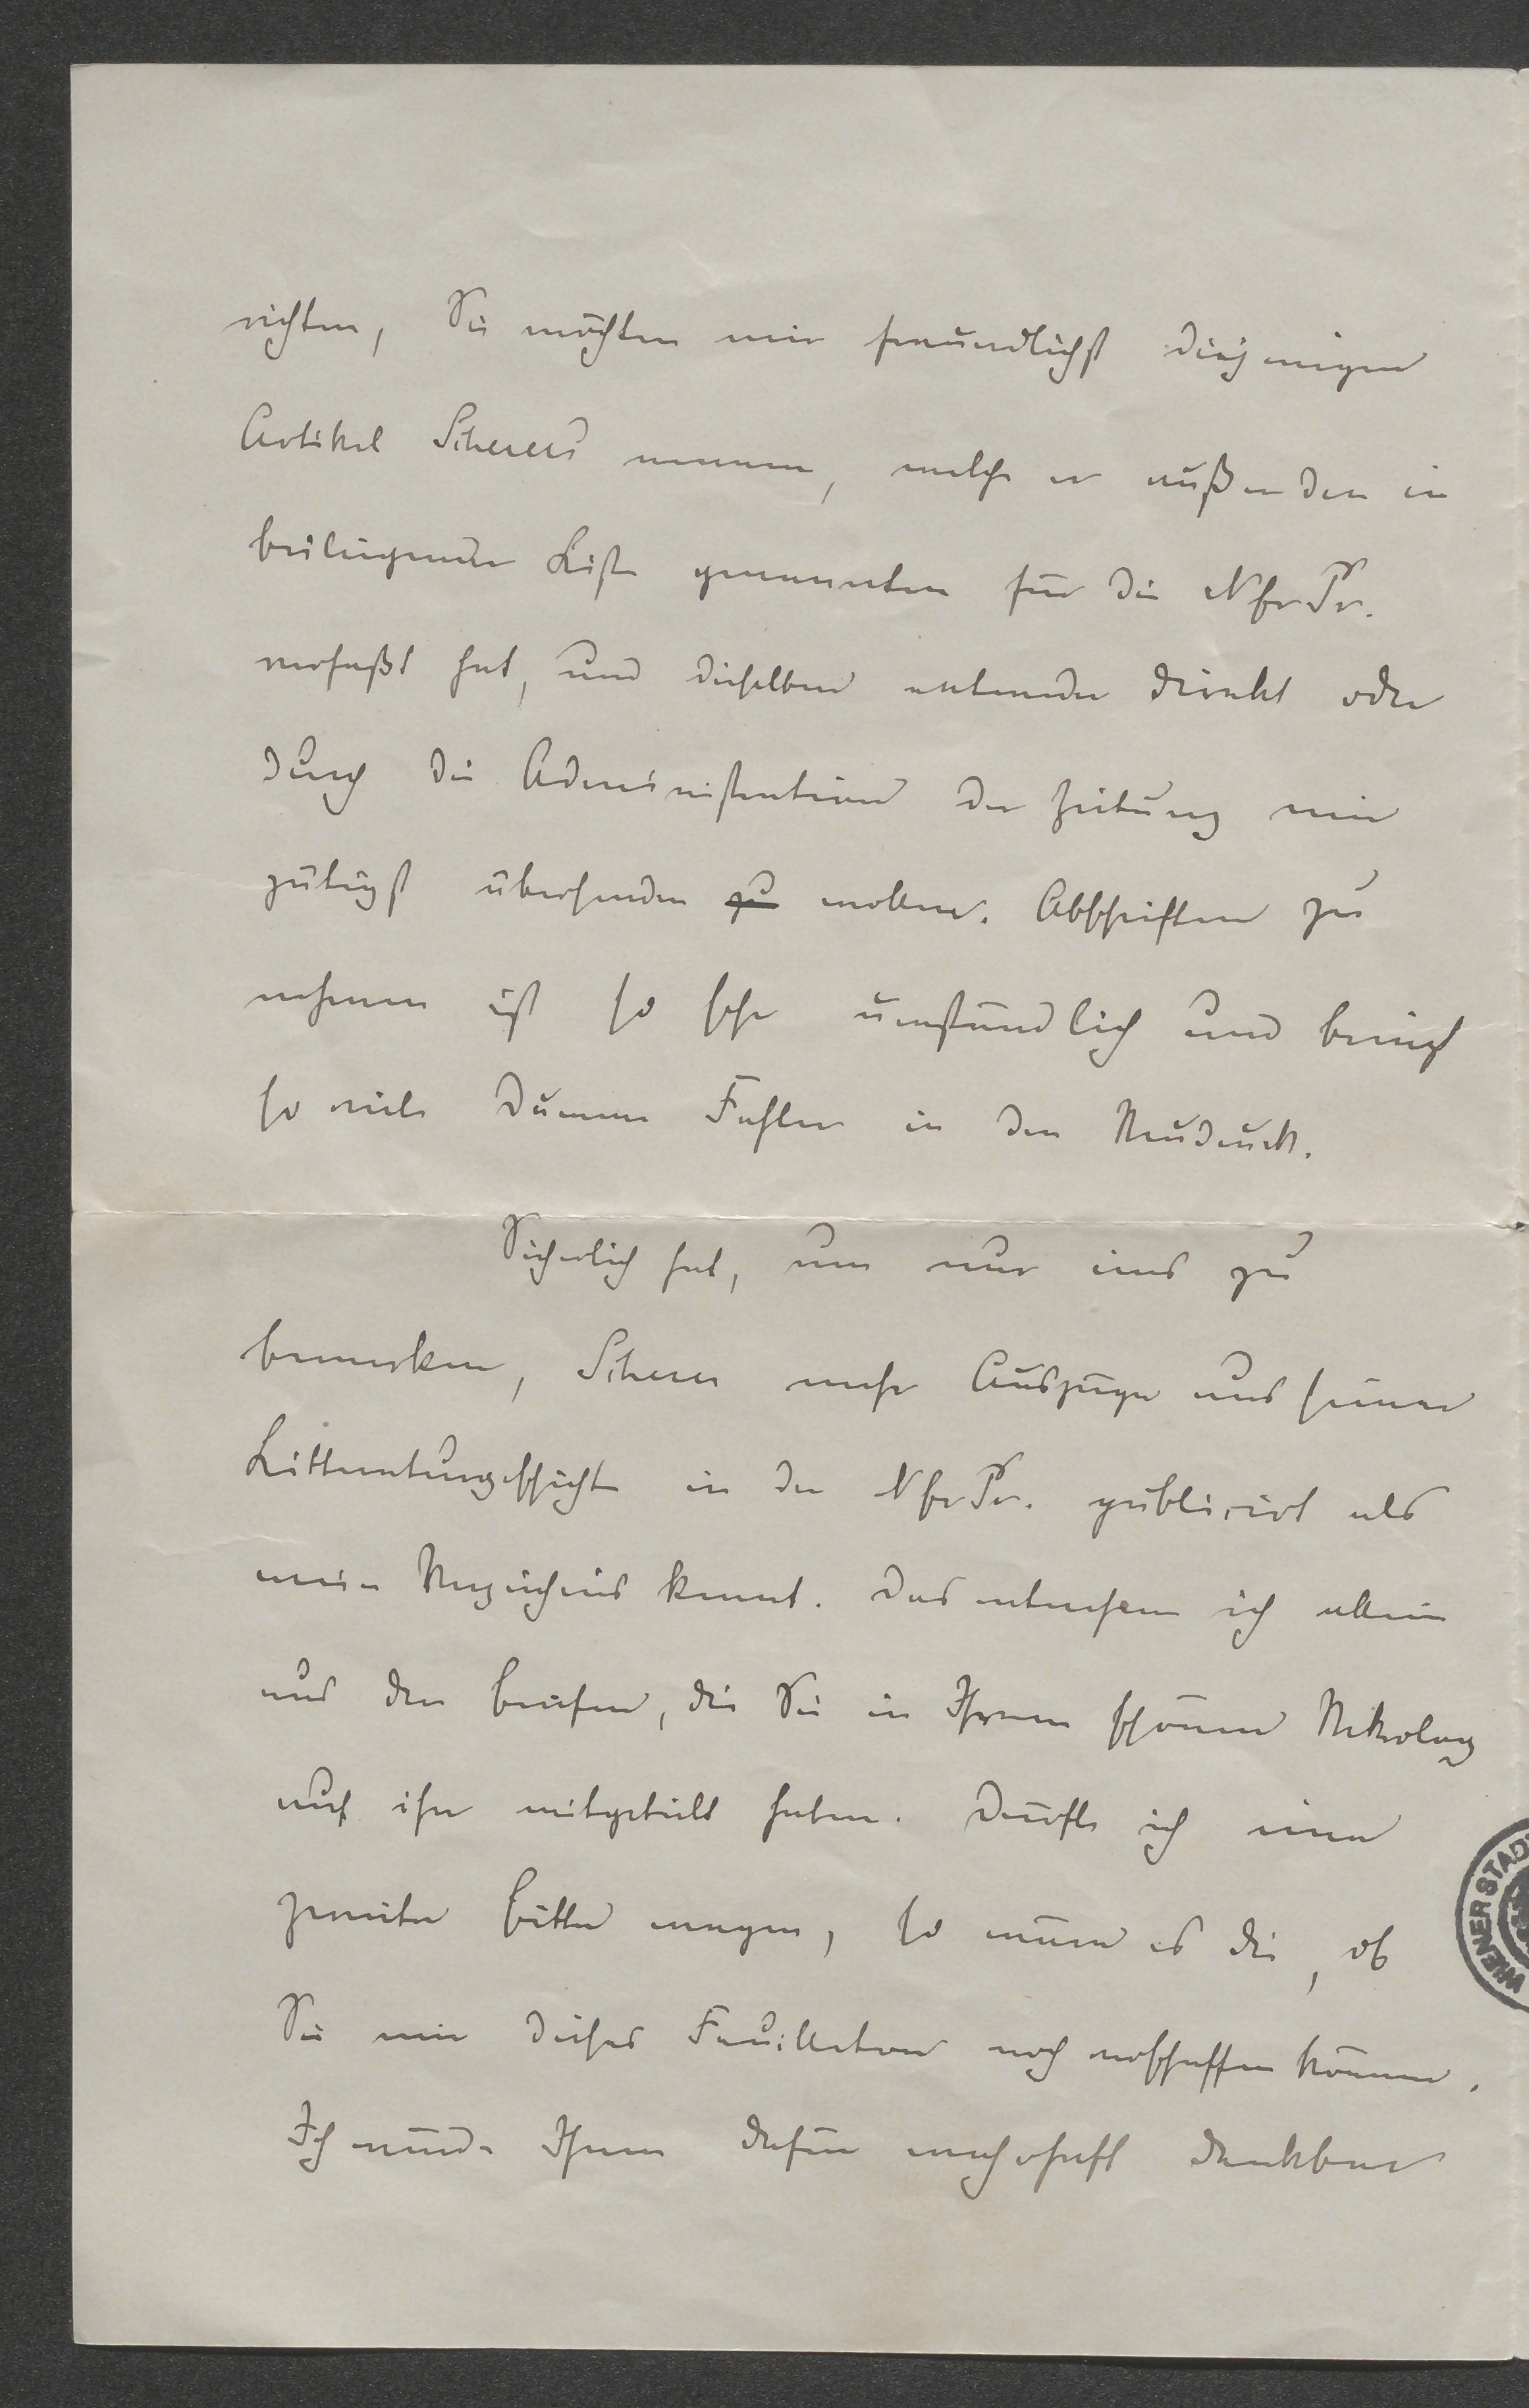 richten, Sie möchten mir freundlichst diejenigen
Artikel Scherers nennen, welche er außer den in
beiliegender Liste genannten für die NfrPr.
verfaßt hat, und dieselben entweder direkt oder
durch die Administration der Zeitung mir
gütigst übersenden zu wollen. Abschriften zu
nehmen ist so sehr umständlich und bringt
so viele dumme Fehler in den Neudruck.
Sicherlich hat, um nur eins zu
bemerken, Scherer mehr Auszüge aus seiner
Litteraturgeschichte in der NfrPr. publicirt als
mein Verzeichnis kennt. Das entnehme ich allein
aus den Briefen, die Sie in Ihrem schönen Nekrolog
auf ihn mitgeteilt haben. Dürfte ich eine
zweite Bitte wagen, so wäre es die, ob
Sie mir dieses Feuilleton noch verschaffen können.
Ich würde Ihnen dafür wahrhaft dankbar
WIENER STAD